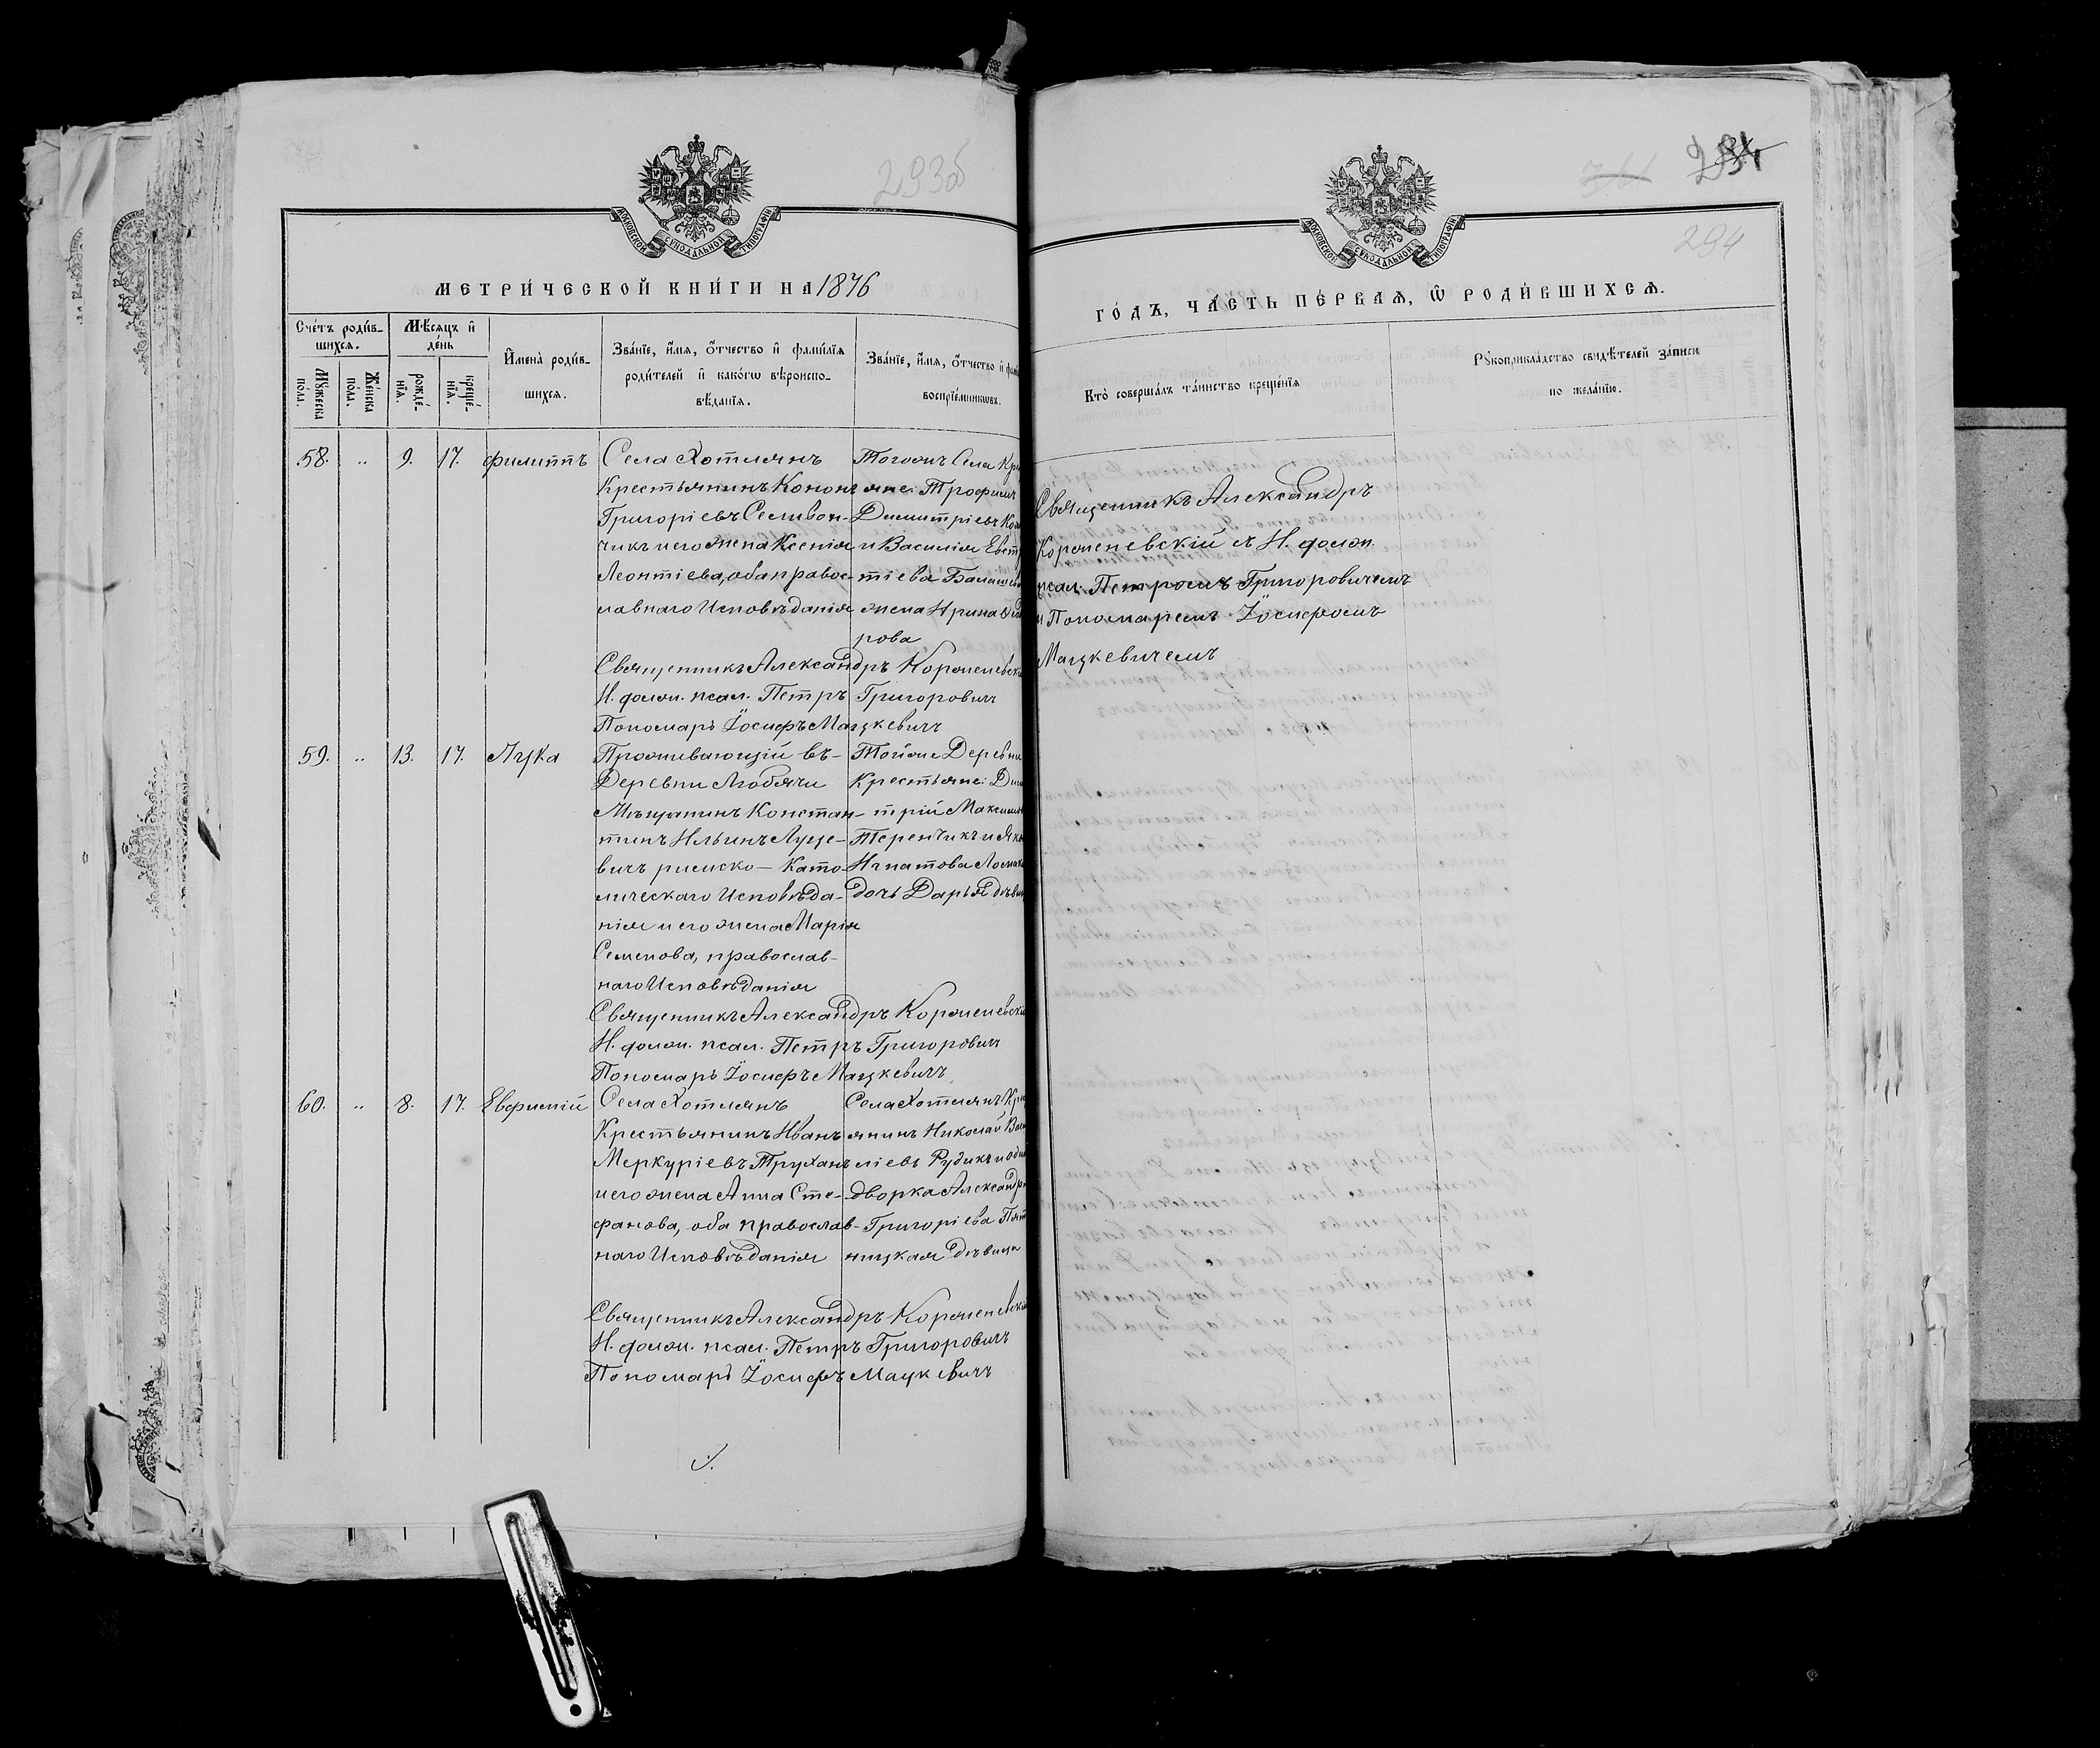 293об
МОСКОВСКОЙ СѴНОДАЛЬНОЙ ТИПОГРАФІИ
МЕТРИ́ЧЕСКОЙ КНИ́ГИ НА 1876
Сче́тъ роди́в-
шихсѧ.
Мѣ́сѧцъ и҆
де́нь
Мꙋ́жеска
по́ла.
Же́нска
по́ла.
рожде́-
нїѧ.
креще́-
нїѧ.
И҆мена̀ роди́в-
шихсѧ.
Зва́нїе, и҆́мѧ, ѻ҆́тчество и҆ фами́лїѧ
роди́телей и҆ како́гѡ вѣроиспо-
вѣ́данїѧ.
Зва́нїе, и҆́мѧ, ѻ҆́тчество и҆
воспрїе́мникѡвъ.
58. „ 9. 17. Филиппъ
Села Хотмянъ
Крестьянинъ Кононъ
Григоріевъ Селивон-
чикъ и его жена Ксенія
Леонтіева, оба правос-
лавнаго Исповѣданія
Тогожъ Села Кр
яне: Трофимъ
Димитріевъ
и Василія Евст
тіева
жена Ирина
рова
Священникъ Александръ Корженевскі
И. долж. псал. Петръ Григоровичъ
Пономарь Іосифъ Мацкевичъ
59. „ 13. 17. Лука
Проживающій въ
Деревни Любячи
Мѣщанинъ Констан-
тинъ Ильинъ Луце-
вичъ римско-Като-
лическаго Исповѣда-
нія и его жена Марія
Семенова, православ-
наго Исповѣданія
Тойже Деревни
Крестьяне: Дим
трій Максимо
Теренчикъ и Як
Игнатова
дочь Дарья дѣви
Священникъ Александръ Корженевскі
И. долж. псал. Петръ Григоровичъ
Пономарь Іосифъ Мацкевичъ
60. „ 8. 17. Евфимій
Села Хотмянъ
Крестьянинъ Иванъ
Меркуріевъ Труханъ
и его жена Анна Сте-
фанова, оба православ-
наго Исповѣданія
Села Хотмянъ Кре
янинъ Николай Васи
ліевъ Рудикъ и одно
дворка Александра
Григоріева Пят
ницкая дѣвица
Священникъ Александръ Корженевскій
И. долж. псал. Петръ Григоровичъ
Пономарь Іосифъ Мацкевичъ
294
МОСКОВСКОЙ СѴНОДАЛЬНОЙ ТИПОГРАФІИ
ГО́ДЪ, ЧА́СТЬ ПЕ́РВАѦ, Ѡ҆ РОДИ́ВШИХСѦ.
Кто̀ соверша́лъ та́инство креще́нїѧ
Рꙋкоприкла́дство свидѣ́телей за́писи
по жела́нїю.
Священникъ Александръ
Корженевскій съ И. долж.
псал. Петромъ Григоровичемъ
и Пономаремъ Іосифомъ
Мацкевичемъ